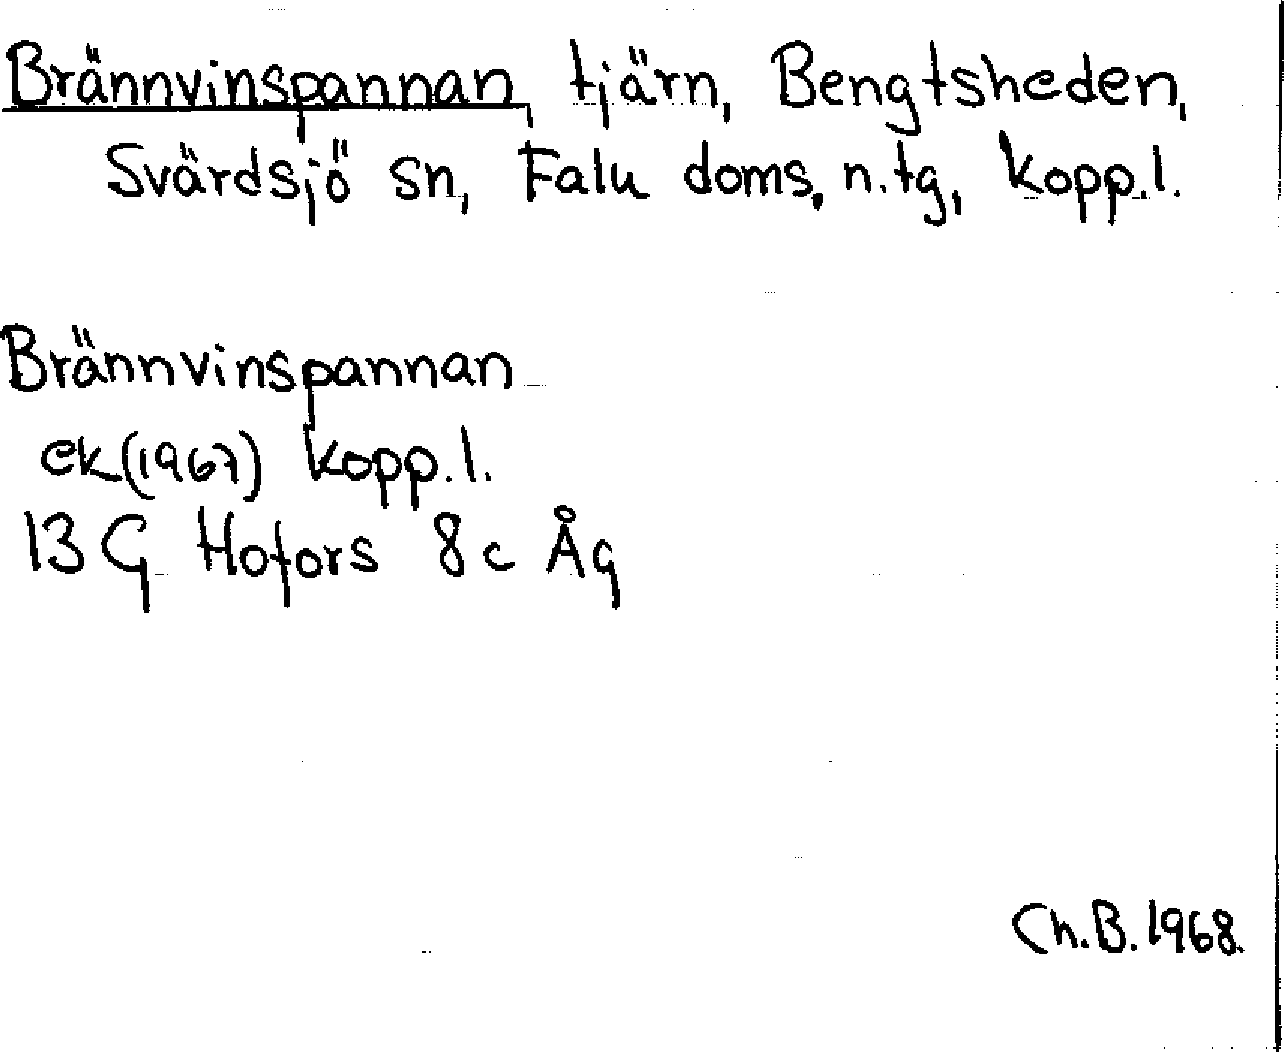 Brännvinspannan, tjärn, Bengtsheden,
Svärdsjö sn, Falu doms, n.tg, Kopp.l.
Brännvinspannan
ek(1967) Kopp.l.
13 G Hofors 8c Åg
Ch.B.1968.